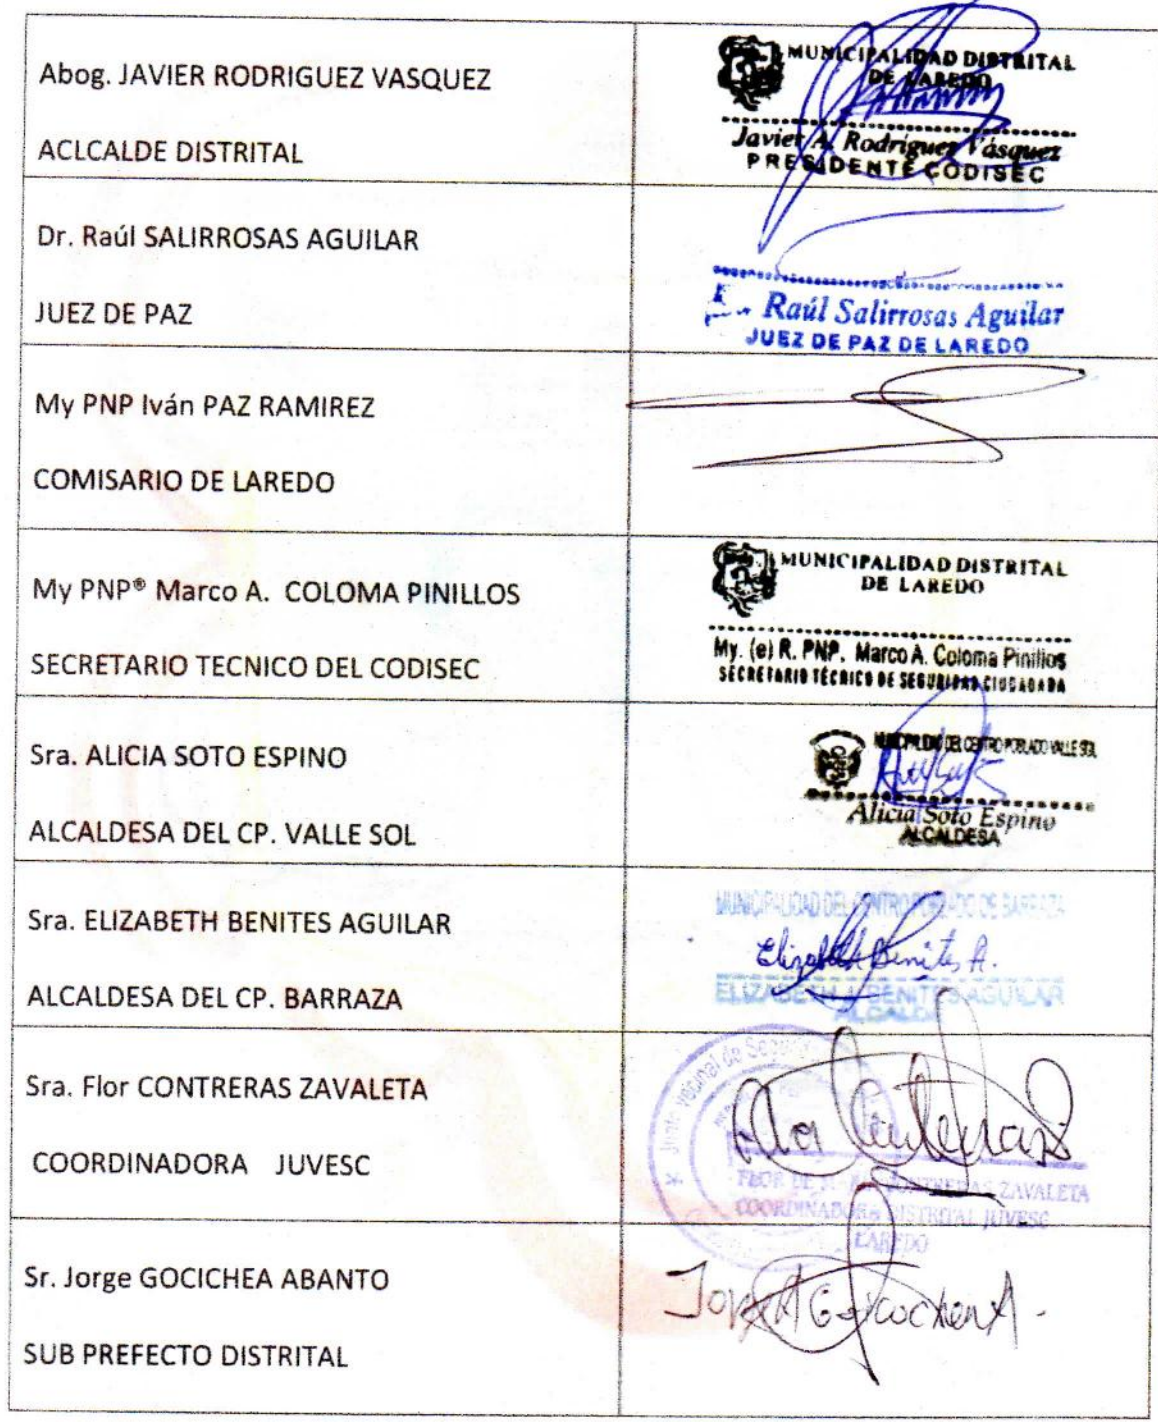 Abog. JAVIER RODRIGUEZ VASQUEZ
ACLCALDE DISTRITAL
MUNICIPALIDAD DISTRITAL
DE LAREDO
Javier A. Rodríguez Vásquez
PRESIDENTE CODISEC
Dr. Raúl SALIRROSAS AGUILAR
JUEZ DE PAZ
Raúl Salirrosas Aguilar
JUEZ DE PAZ DE LAREDO
My PNP Iván PAZ RAMIREZ
COMISARIO DE LAREDO
My PNP® Marco A. COLOMA PINILLOS
SECRETARIO TECNICO DEL CODISEC
MUNICIPALIDAD DISTRITAL
DE LAREDO
My. (e) R. PNP. Marco A. Coloma Pinillos
SECRETARIO TÉCNICO DE SEGURIDAD CIUDADANA
Sra. ALICIA SOTO ESPINO
ALCALDESA DEL CP. VALLE SOL
MUNICIPALIDAD DEL CENTRO POBLADO VALLE SOL
Alicia Soto Espino
ALCALDESA
Sra. ELIZABETH BENITES AGUILAR
ALCALDESA DEL CP. BARRAZA
MUNICIPALIDAD DEL CENTRO POBLADO DE BARRAZA
Elizabeth Benites A.
ELIZABETH J. BENITES AGUILAR
Sra. Flor CONTRERAS ZAVALETA
COORDINADORA JUVESC
Junta Vecinal de
FLOR DE CONTRERAS ZAVALETA
COORDINADORA DISTRITAL JUVESC
LAREDO
Sr. Jorge GOCICHEA ABANTO
SUB PREFECTO DISTRITAL